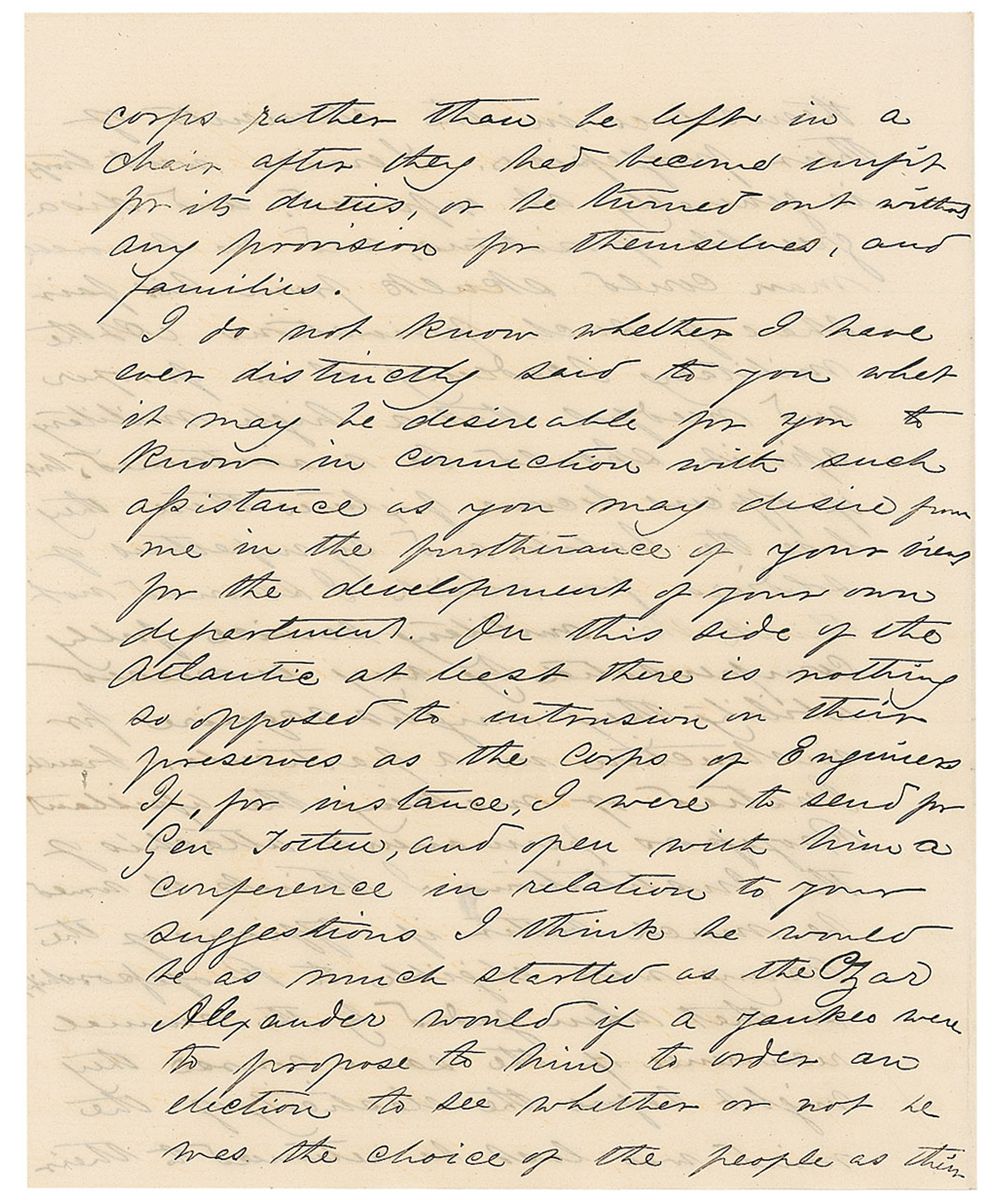 corps rather than be left in a
chair after they had become unfit
for its duties, or be turned out without
any provision for themselves, and
families.
I do not know whether I have
ever distinctly said to you what
it may be desireable for you to
know in connection with such
assistance as you may desire from
me in the furtherance of your views
for the development of your own
department. On this side of the
Atlantic at least there is nothing
so opposed to intrusion on their
preserves as the corps of Engineers
If, for instance, I were to send for
Gen Totten, and open with him a
conference in relation to your
suggestions I think he would
be as much startled as the Czar
Alexander would if a yankee were
to propose to him to order an
election to see whether or not he
was the choice of the people as their